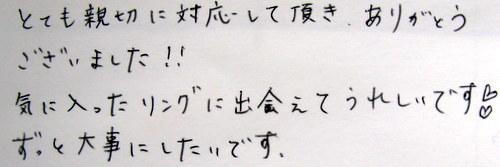 とても親切に対応して頂き、ありがとう
ございました!!
気に入ったリングに出会えてうれしいです♡♡
ずっと大事にしたいです。